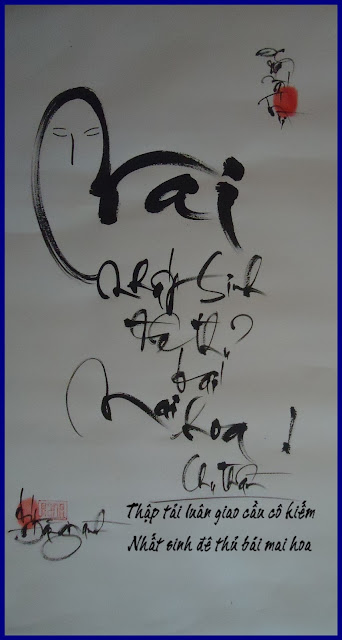 Mai
Nhất Sinh
đê thủ
bái
Mai
hoa !
Chu Thần
Thập tải luân giao cầu cổ kiếm
Nhất sinh đê thủ bái mai hoa